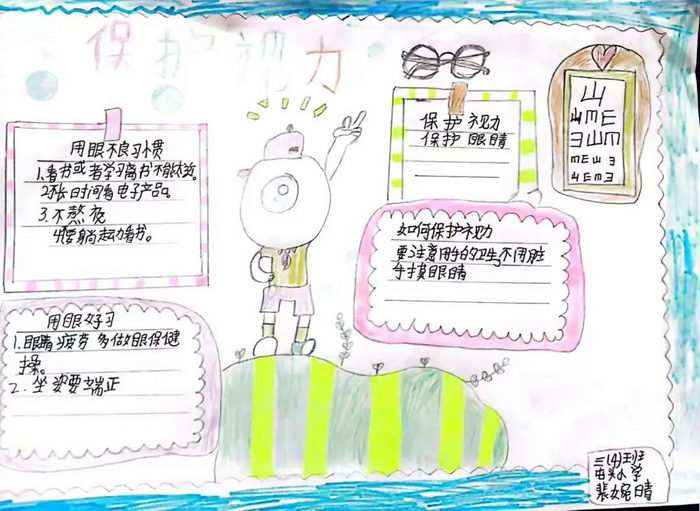 保护视力
用眼不良习惯
1.看书或者学习离书不能太近。
2不长日时间看电子产品。
3.不熬夜
4.要躺起为看书。
保护视力
保护眼睛
山
山ME
ヨ山M
如何保护视力
要注意用手的卫生不用脏
手揉眼睛
用眼好习
1.眼睛疲劳多做眼保健
操。
2.坐姿要端正
三(4)班
小学
晴